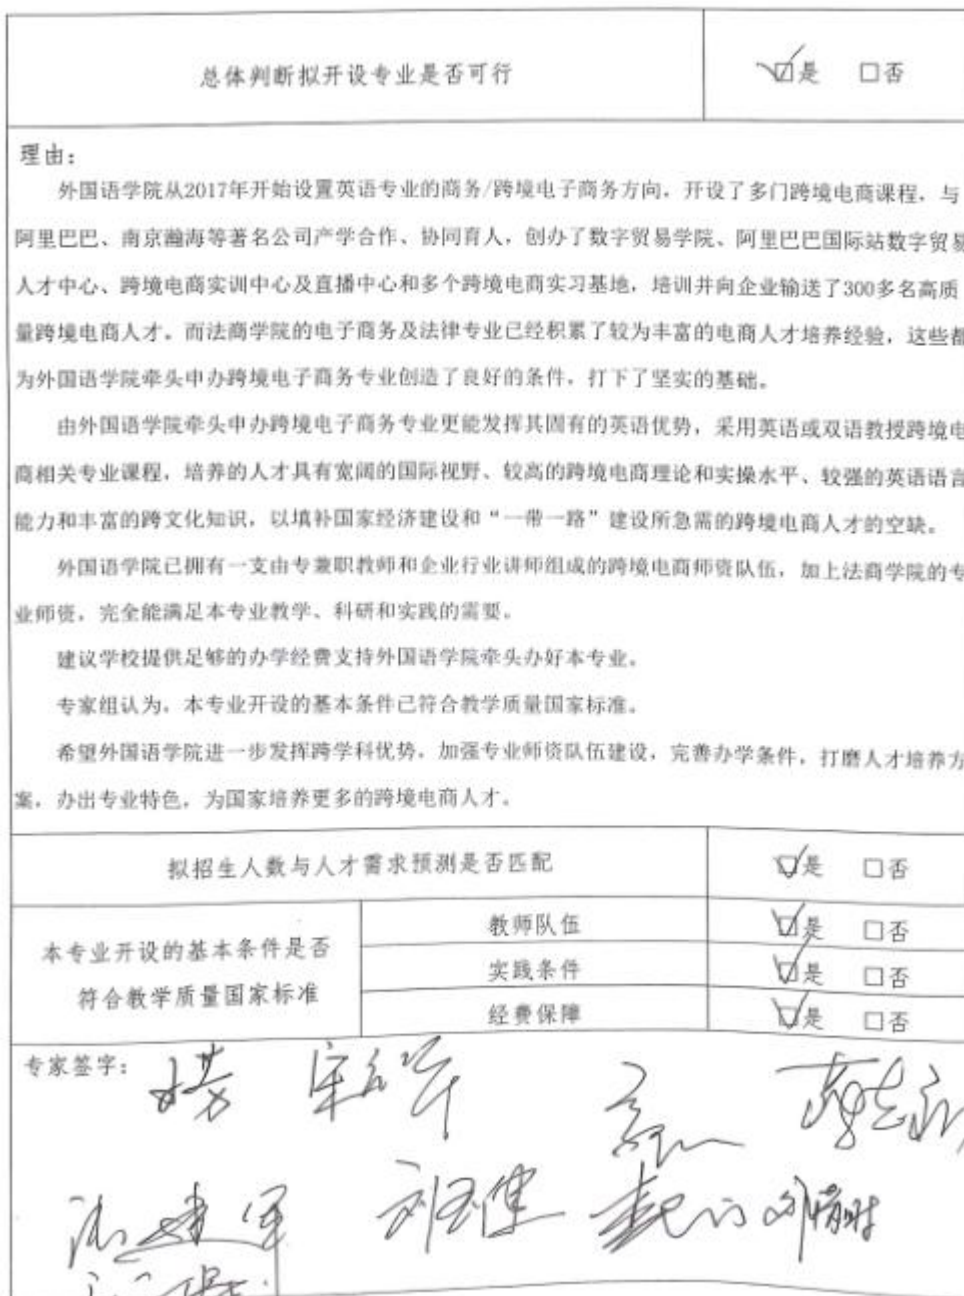 总体判断拟开设专业是否可行 ☑是 □否
理由：
外国语学院从2017年开始设置英语专业的商务/跨境电子商务方向，开设了多门跨境电商课程，与
阿里巴巴、南京瀚海等著名公司产学合作、协同育人，创办了数字贸易学院、阿里巴巴国际站数字贸易
人才中心、跨境电商实训中心及直播中心和多个跨境电商实习基地，培训并向企业输送了300多名高质
量跨境电商人才。而法商学院的电子商务及法律专业已经积累了较为丰富的电商人才培养经验，这些都
为外国语学院牵头申办跨境电子商务专业创造了良好的条件，打下了坚实的基础。
由外国语学院牵头申办跨境电子商务专业更能发挥其固有的英语优势，采用英语或双语教授跨境电
商相关专业课程，培养的人才具有宽阔的国际视野、较高的跨境电商理论和实操水平、较强的英语语言
能力和丰富的跨文化知识，以填补国家经济建设和“一带一路”建设所急需的跨境电商人才的空缺。
外国语学院已拥有一支由专兼职教师和企业行业讲师组成的跨境电商师资队伍，加上法商学院的专
业师资，完全能满足本专业教学、科研和实践的需要。
建议学校提供足够的办学经费支持外国语学院牵头办好本专业。
专家组认为，本专业开设的基本条件已符合教学质量国家标准。
希望外国语学院进一步发挥跨学科优势，加强专业师资队伍建设，完善办学条件，打磨人才培养方
案，办出专业特色，为国家培养更多的跨境电商人才。
拟招生人数与人才需求预测是否匹配 ☑是 □否
本专业开设的基本条件是否
符合教学质量国家标准
教师队伍 ☑是 □否
实践条件 ☑是 □否
经费保障 ☑是 □否
专家签字：